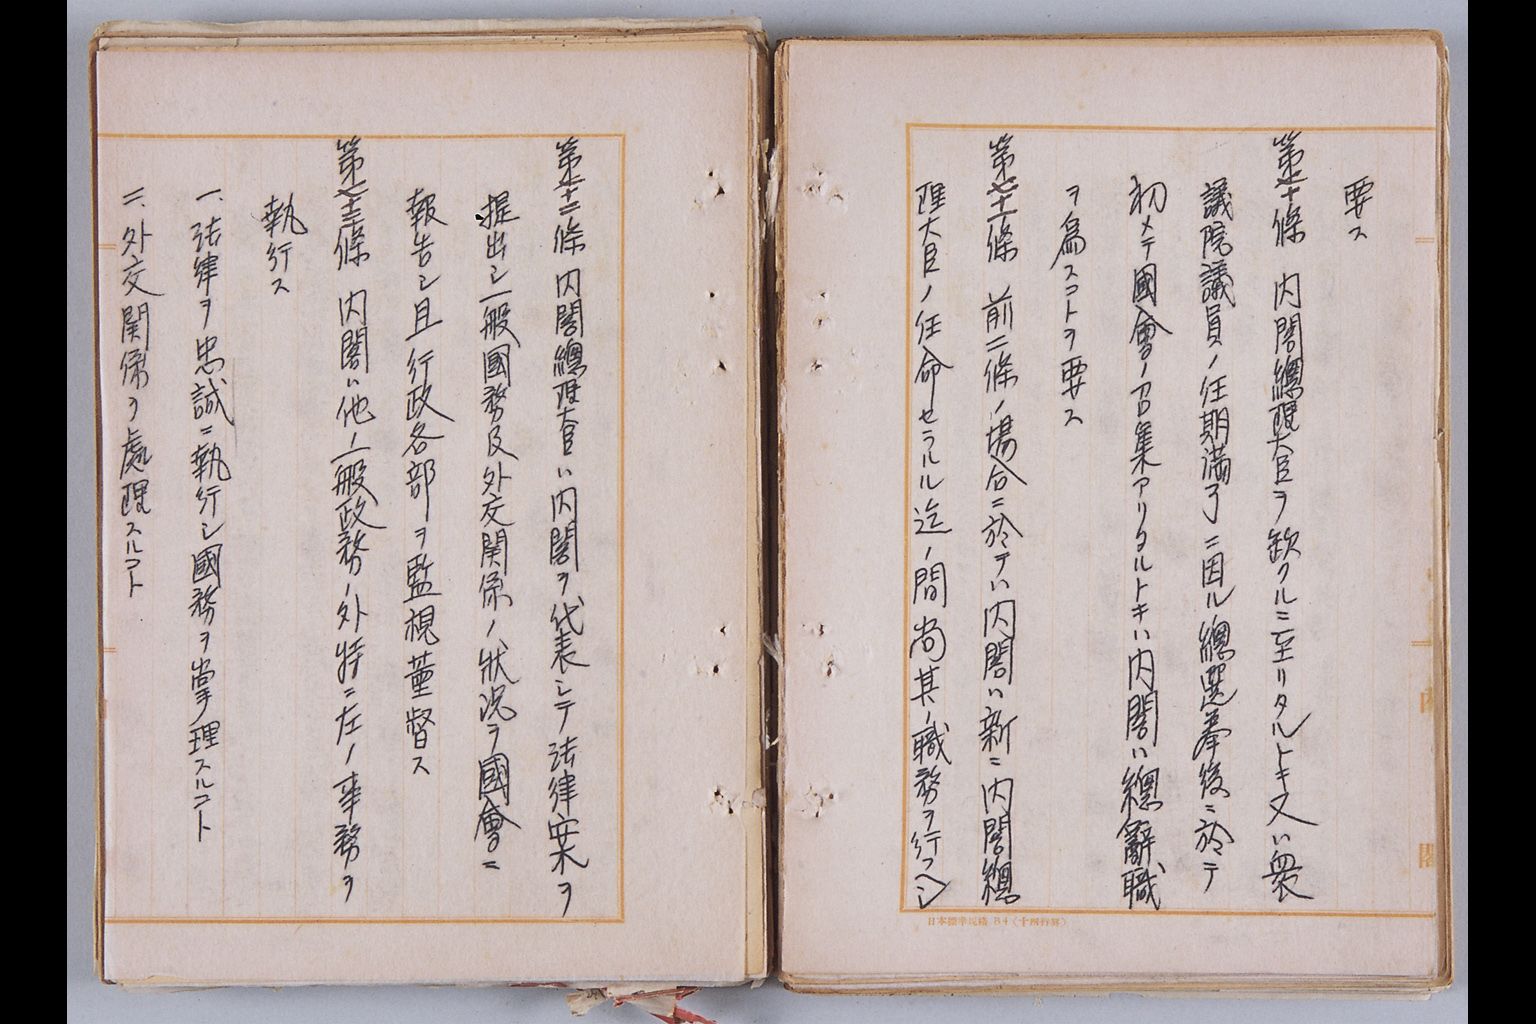 要ス
第七十條　内閣總理大臣ヲ欽クルニ至リタルトキ又ハ衆
議院議員ノ任期満了ニ因ル總選挙後ニ於テ
初メテ國會ノ召集アリタルトキハ内閣ハ總辭職
ヲ為スコトヲ要ス
第七十一條　前二條ノ場合ニ於テハ内閣ハ新ニ内閣總
理大臣ノ任命セラルル迄ノ間尚其ノ職務ヲ行フヘシ
日本標準規格B4（十四行罫）
第七十二條　内閣總理大臣ハ内閣ヲ代表シテ法律案ヲ
提出シ一般國務及外交関係ノ状況ヲ國會ニ
報告シ且行政各部ヲ監視董督ス
第七十三條　内閣ハ他ノ一般政務ノ外特ニ左ノ事務ヲ
執行ス
一、法律ヲ忠誠ニ執行シ國務ヲ掌理スルコト
二、外交関係ヲ處理スルコト